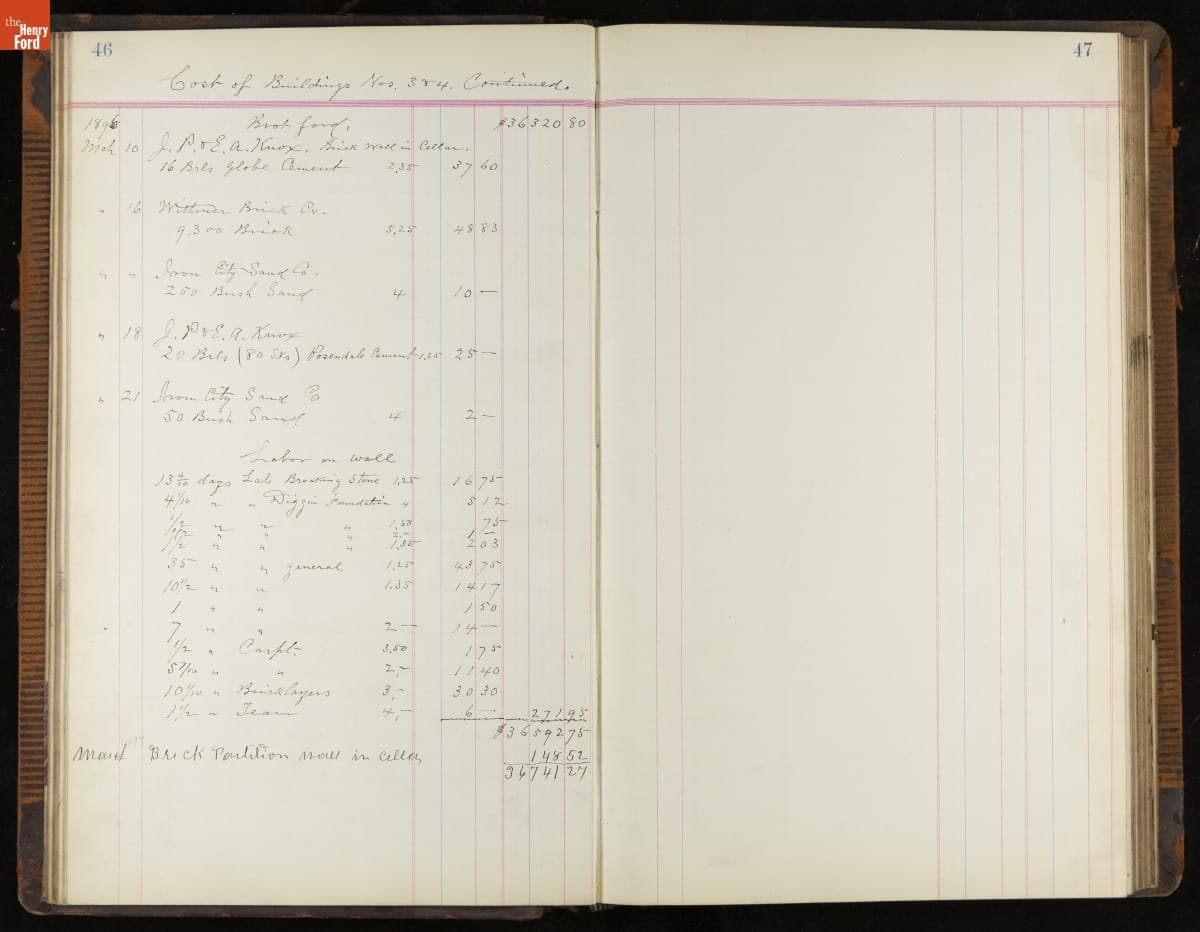 the Henry Ford
46
47
Cost of Buildings Nos. 3 & 4. Continued.
1896 Brot ford, $36320 80
Mch 10 J. P. & E. A. Knox, Brick Wall in Cellar.
16 Brls Globe Cement 2,35 37 60
" 16 Wittmer Brick Co.
9,300 Brick 5,25 48 83
" " Iron City Sand Co.
250 Bush Sand 4 10 —
" 18 J. P. & E. A. Knox
20 Brls (80 Sks) Rosendale Cement 1,25 25 —
" 21 Iron City Sand Co
50 Bush Sand 4 2 —
Labor on wall
13 4/10 days Lab Breaking Stone 1,25 16 75
4 1/10 " " Diggin Foundation " 5 12
1/2 " " " 1,50 75
1/2 " " " 2,— 1 —
1 1/2 " " " 1,35 2 03
35 " " general 1,25 43 75
10 1/2 " " 1.35 14 17
1 " " 1 50
7 " " 2 — 14 —
1/2 " Carpt. 3,50 1 75
5 7/10 " " 2,— 11 40
10 1/10 " Bricklayers 3,— 30 30
1 1/2 " Team 4,— 6 — 271 95
$36592 75
March 1897 Brick Partition wall in cellar 148 52
36741 27